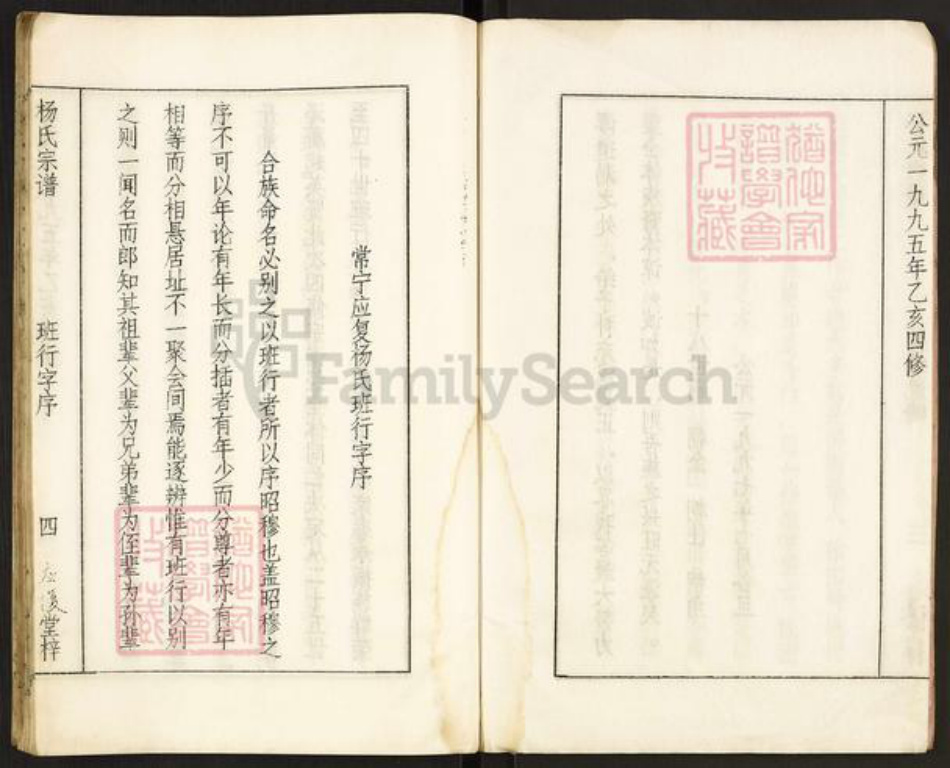 公元一九九五年乙亥四修
猶他家
譜學會
收藏
常宁应复杨氏班行字序
合族命名必别之以班行者所以序昭穆也盖昭穆之
序不可以年论有年长而分插者有年少而分尊者亦有年
相等而分相悬居址不一聚会间焉能逐辨惟有班行以别
之则一闻名而郎知其祖辈父辈为兄弟辈为侄辈为孙辈
猶他家
譜學會
收藏
杨氏宗谱
班行字序
四
应復堂梓
FamilySearch